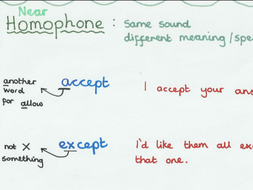 Near
Homophone : Same sound
different meaning/spe
another
word
for allow
accept
I accept your ans
not X
something
except
I'd like them all ex
that one.